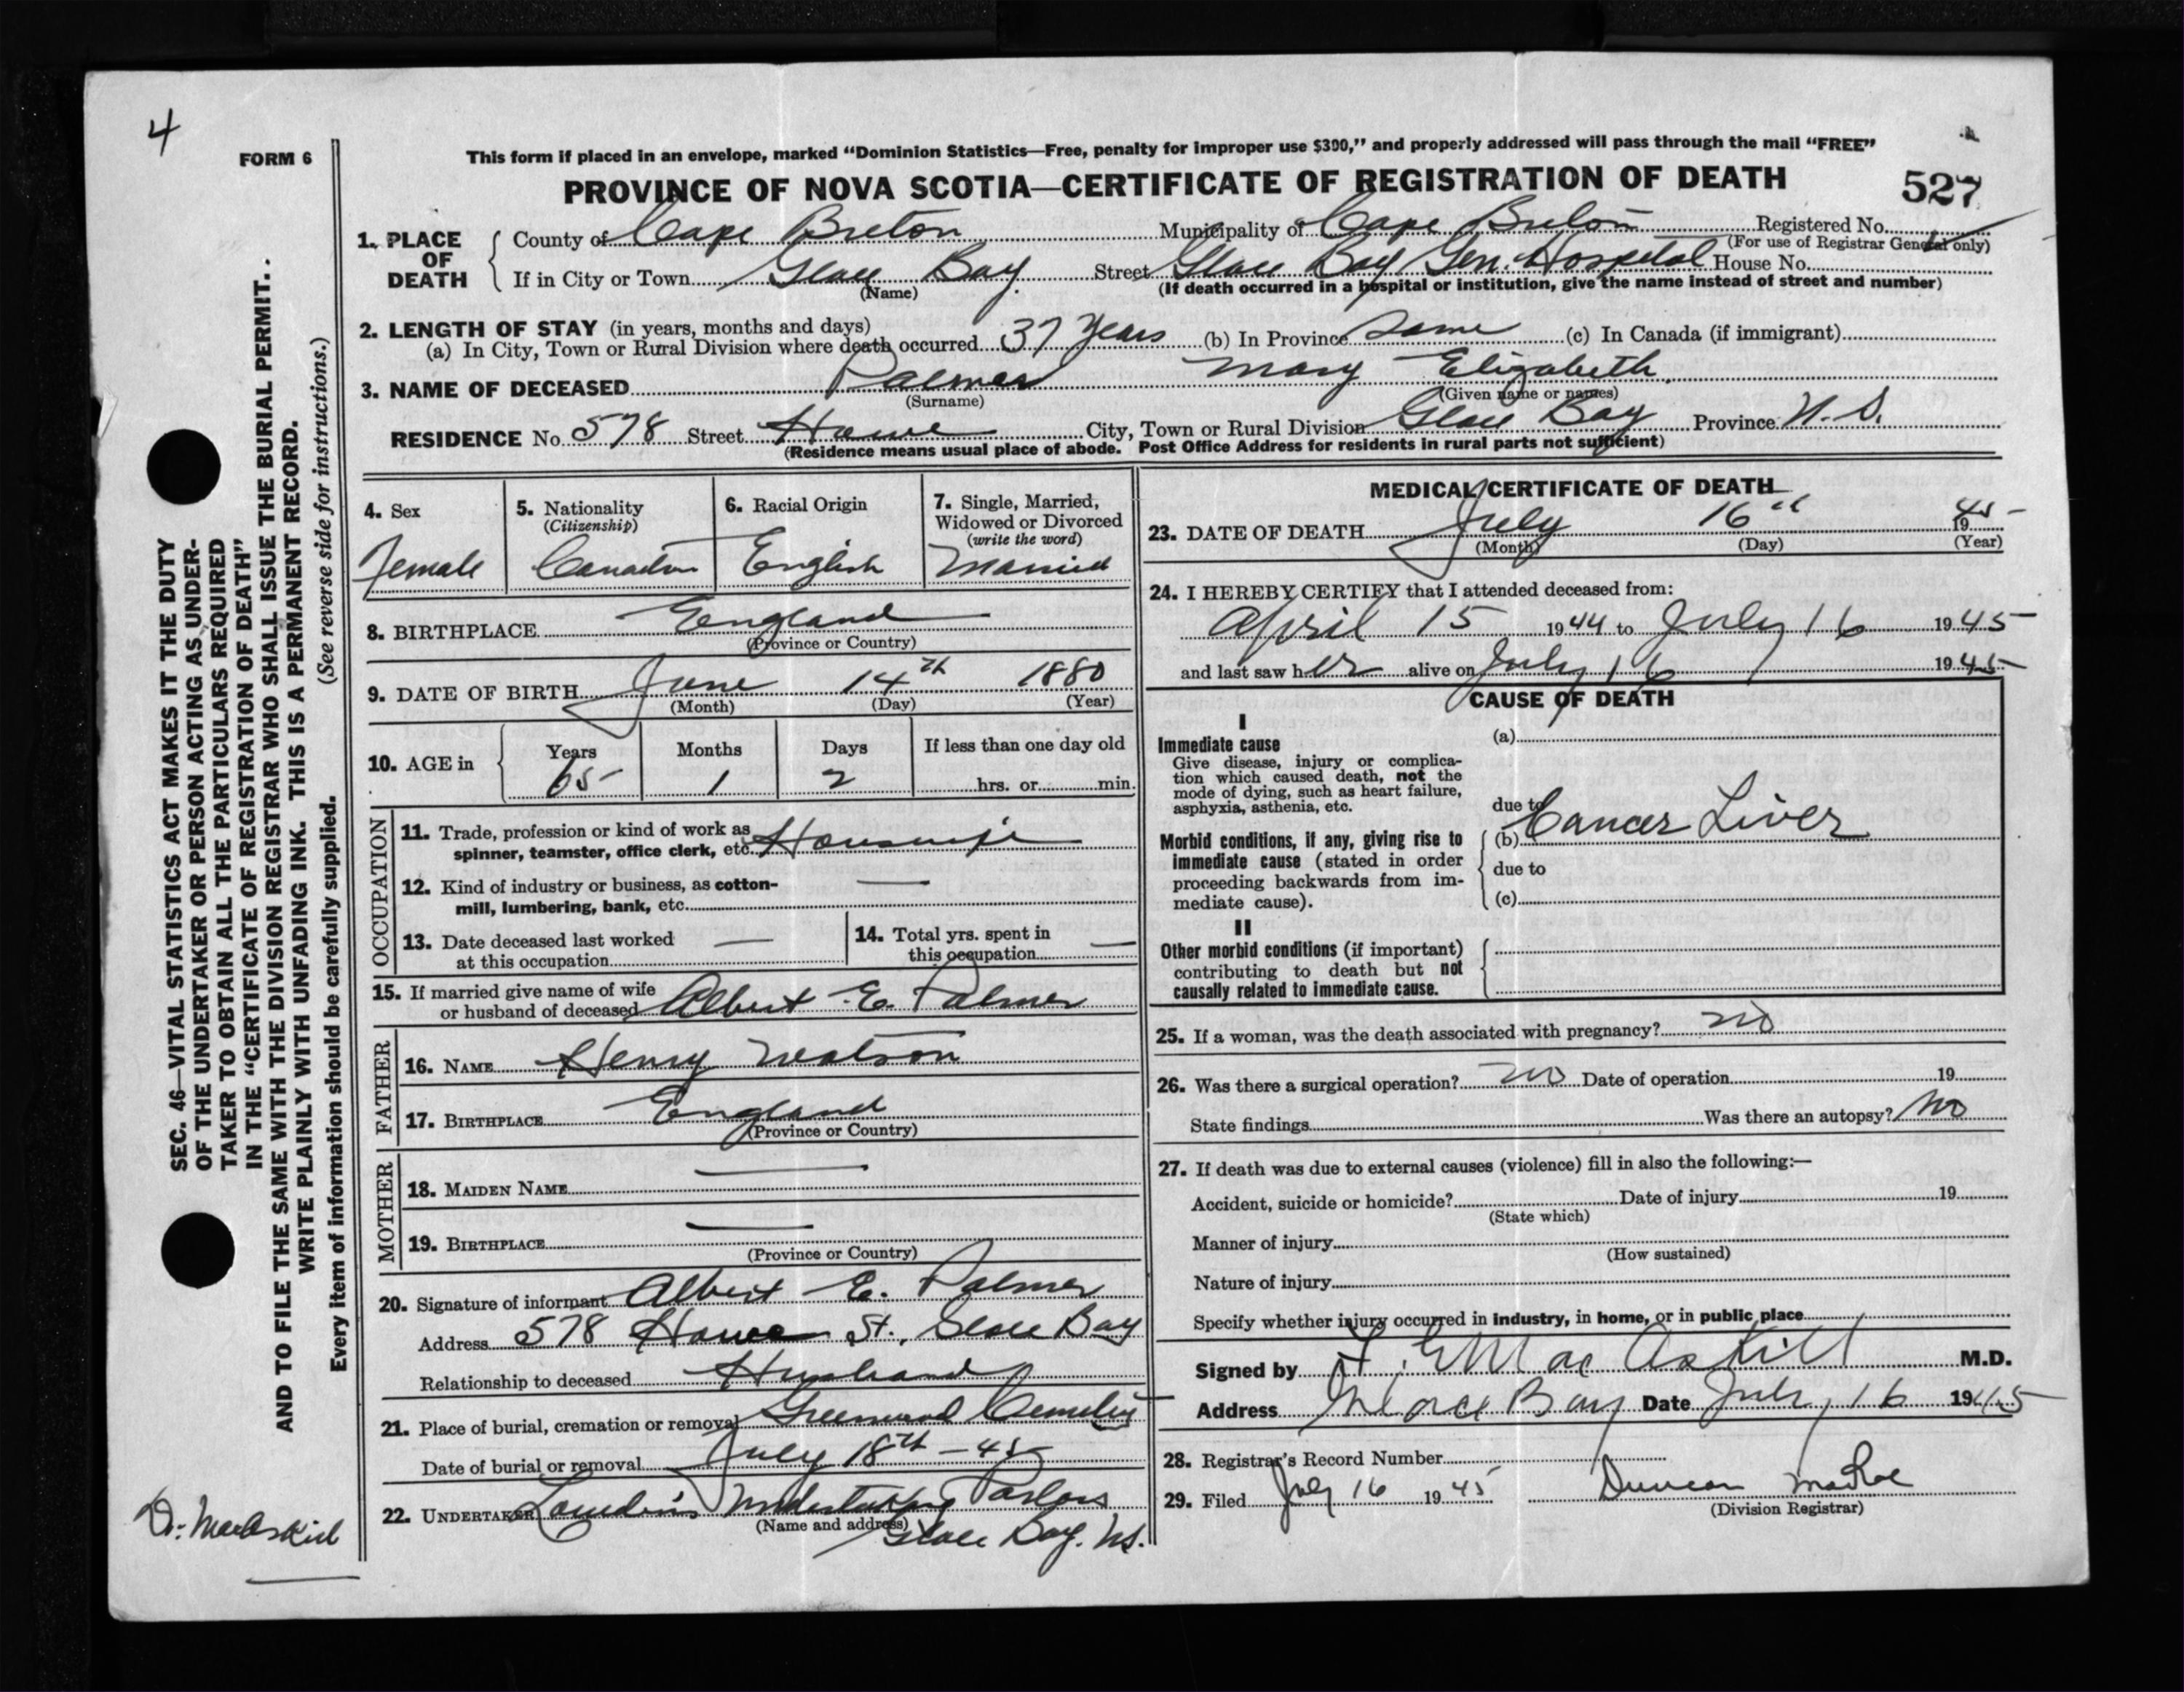 4
FORM 6
This form if placed in an envelope, marked “Dominion Statistics—Free, penalty for improper use $300,” and properly addressed will pass through the mail “FREE”
PROVINCE OF NOVA SCOTIA—CERTIFICATE OF REGISTRATION OF DEATH
527
SEC. 46—VITAL STATISTICS ACT MAKES IT THE DUTY
OF THE UNDERTAKER OR PERSON ACTING AS UNDER-
TAKER TO OBTAIN ALL THE PARTICULARS REQUIRED
IN THE “CERTIFICATE OF REGISTRATION OF DEATH”
AND TO FILE THE SAME WITH THE DIVISION REGISTRAR WHO SHALL ISSUE THE BURIAL PERMIT.
WRITE PLAINLY WITH UNFADING INK. THIS IS A PERMANENT RECORD.
(See reverse side for instructions.)
Every item of information should be carefully supplied.
1. PLACE OF DEATH
County of Cape Breton Municipality of Cape Breton Registered No.
(For use of Registrar General only)
If in City or Town Glace Bay Street Glace Bay Gen. Hospital House No.
(Name) (If death occurred in a hospital or institution, give the name instead of street and number)
2. LENGTH OF STAY (in years, months and days)
(a) In City, Town or Rural Division where death occurred 37 Years (b) In Province Same (c) In Canada (if immigrant)
3. NAME OF DECEASED Palmer Mary Elizabeth
(Surname) (Given name or names)
RESIDENCE No. 578 Street Howe City, Town or Rural Division Glace Bay Province N. S.
(Residence means usual place of abode. Post Office Address for residents in rural parts not sufficient)
4. Sex
Female
5. Nationality
(Citizenship)
Canadian
6. Racial Origin
English
7. Single, Married,
Widowed or Divorced
(write the word)
Married
8. BIRTHPLACE England
(Province or Country)
9. DATE OF BIRTH June 14th 1880
(Month) (Day) (Year)
10. AGE in Years Months Days If less than one day old
65 1 2 hrs. or min.
OCCUPATION
11. Trade, profession or kind of work as
spinner, teamster, office clerk, etc. Housewife
12. Kind of industry or business, as cotton-
mill, lumbering, bank, etc. —
13. Date deceased last worked
at this occupation —
14. Total yrs. spent in
this occupation —
15. If married give name of wife
or husband of deceased Albert E. Palmer
FATHER
16. NAME Henry Watson
17. BIRTHPLACE England
(Province or Country)
MOTHER
18. MAIDEN NAME —
19. BIRTHPLACE —
(Province or Country)
20. Signature of informant Albert E. Palmer
Address 578 Howe St., Glace Bay
Relationship to deceased Husband
21. Place of burial, cremation or removal Greenwood Cemetery
Date of burial or removal July 18th - 45
22. UNDERTAKER Undertaking Parlors
(Name and address)
Glace Bay. N.S.
MEDICAL CERTIFICATE OF DEATH
23. DATE OF DEATH July 16th 1945
(Month) (Day) (Year)
24. I HEREBY CERTIFY that I attended deceased from:
April 15 1944 to July 16 1945
and last saw her alive on July 16 1945
CAUSE OF DEATH
I
Immediate cause
Give disease, injury or complica-
tion which caused death, not the
mode of dying, such as heart failure,
asphyxia, asthenia, etc.
(a)
due to
Morbid conditions, if any, giving rise to
immediate cause (stated in order
proceeding backwards from im-
mediate cause).
(b) Cancer Liver
due to
(c)
II
Other morbid conditions (if important)
contributing to death but not
causally related to immediate cause.
25. If a woman, was the death associated with pregnancy? no
26. Was there a surgical operation? no Date of operation 19
State findings Was there an autopsy? no
27. If death was due to external causes (violence) fill in also the following:—
Accident, suicide or homicide? Date of injury 19
(State which)
Manner of injury
(How sustained)
Nature of injury
Specify whether injury occurred in industry, in home, or in public place
Signed by MacAskill M.D.
Address Glace Bay Date July 16 1945
28. Registrar's Record Number
29. Filed July 16 1945 Duncan MacRae
(Division Registrar)
Dr. MacAskill